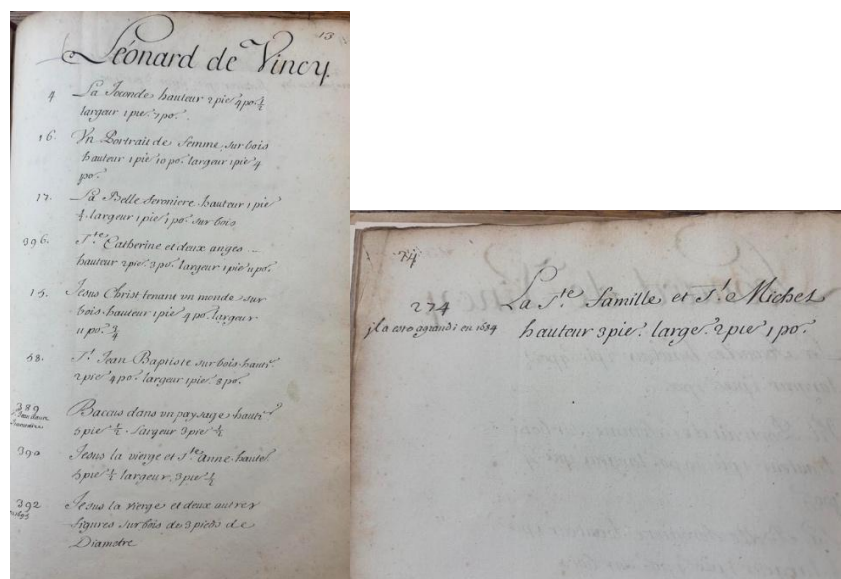 13
Léonard de Vincy
4 La Joconde hauteur 2 pie 4 po. ½
largeur 1 pie 7 po.
16. Un Portrait de femme, sur bois
hauteur 1 pie 10 po. largeur 1 pie 4
po.
17. La Belle feroniere hauteur 1 pie
largeur 1 pie 1 po. sur bois
396. Ste. Catherine et deux anges
hauteur 2 pie 3 po. largeur 1 pie 11 po.
15. Jesus Christ tenant un monde sur
bois hauteur 1 pie 4 po. largeur
11 po. ¾
58. St. Jean Baptiste sur bois haut.
2 pie 4 po. largeur 1 pie 8 po.
389 Baccus dans un paysage haut.
5 pie ½ largeur 3 pie ½
390 Jesus la vierge et Ste Anne haute.
5 pie ½ largeur 3 pie ½
392 Jesus la vierge et deux autres
figures sur bois de 3 pieds de
Diametre
74
274 La Ste. famille et St. Michel
jl a esté agrandi en 1694 hauteur 3 pie. large. 2 pie 1 po.